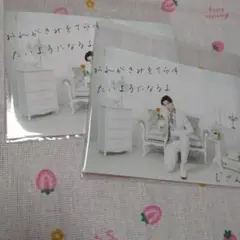 おれがきみをてらす
たいようになるよ
おれがきみをてらす
たいようになるよ